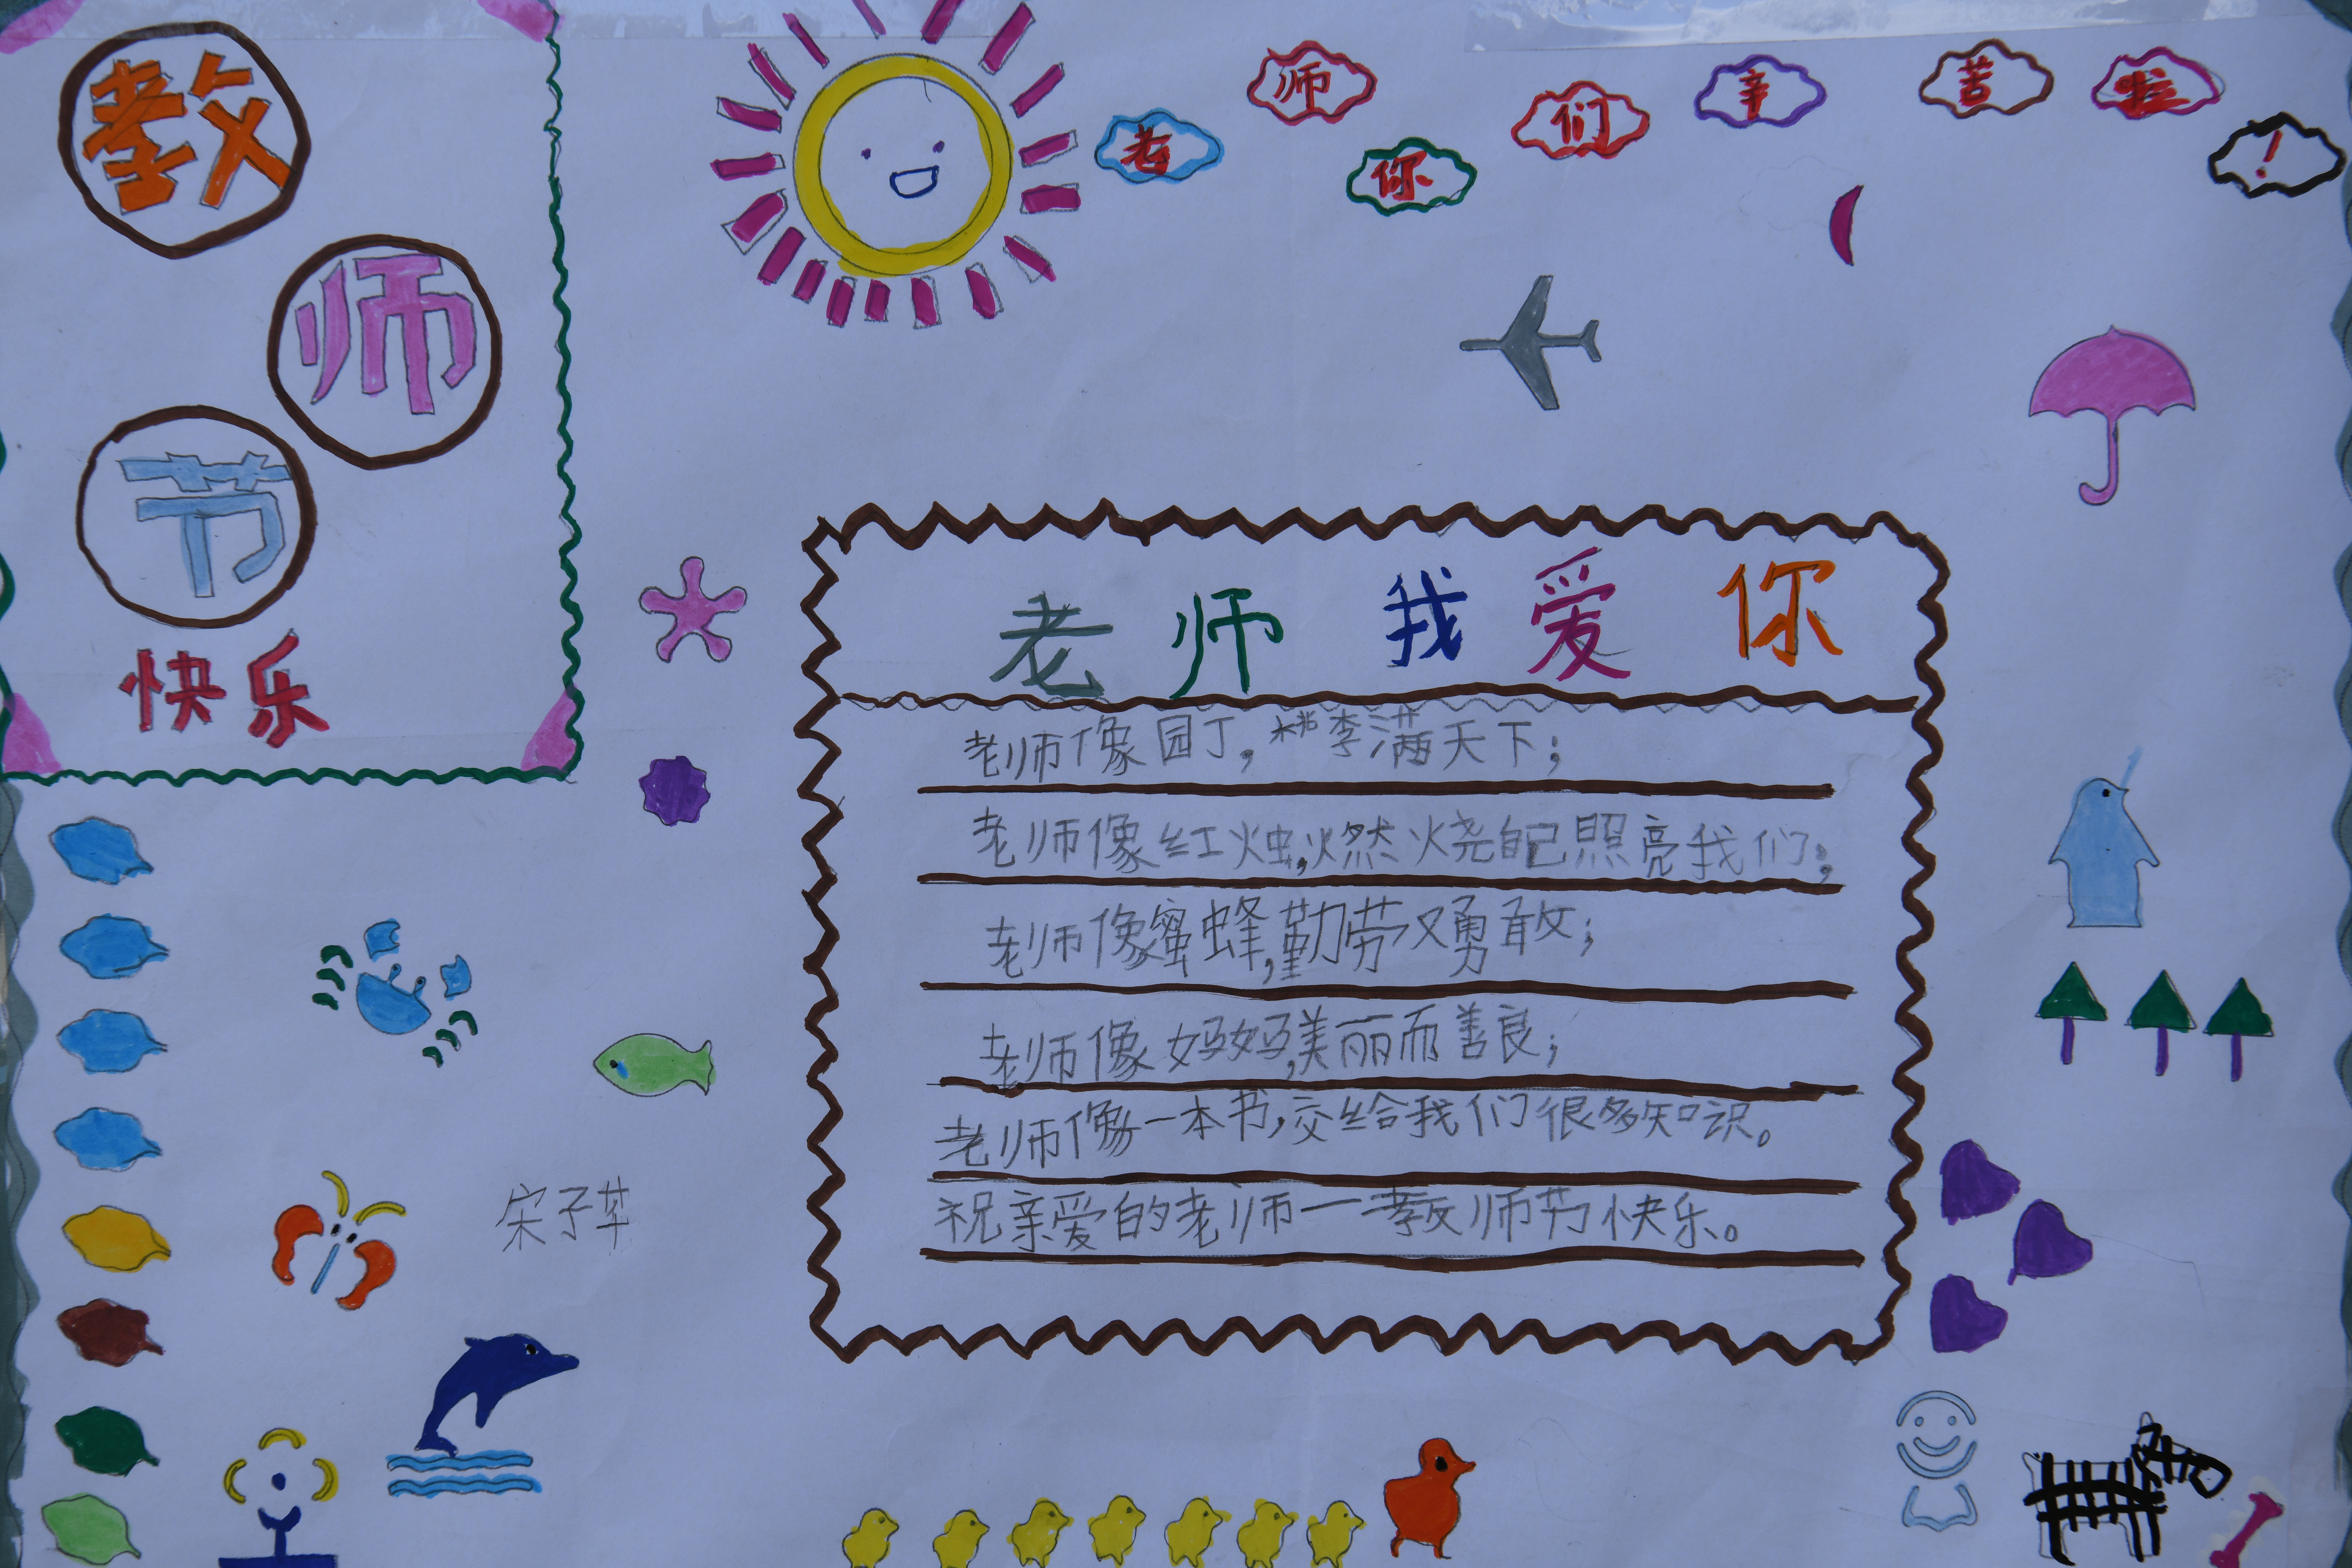 教
师
节
快乐
老师你们辛苦啦!
老师我爱你
老师像园丁,桃李满天下;
老师像红烛,燃烧自己照亮我们;
老师像蜜蜂,勤劳又勇敢;
老师像妈妈,美丽而善良;
老师像一本书,交给我们很多知识。
祝亲爱的老师一教师节快乐。
宋子苹